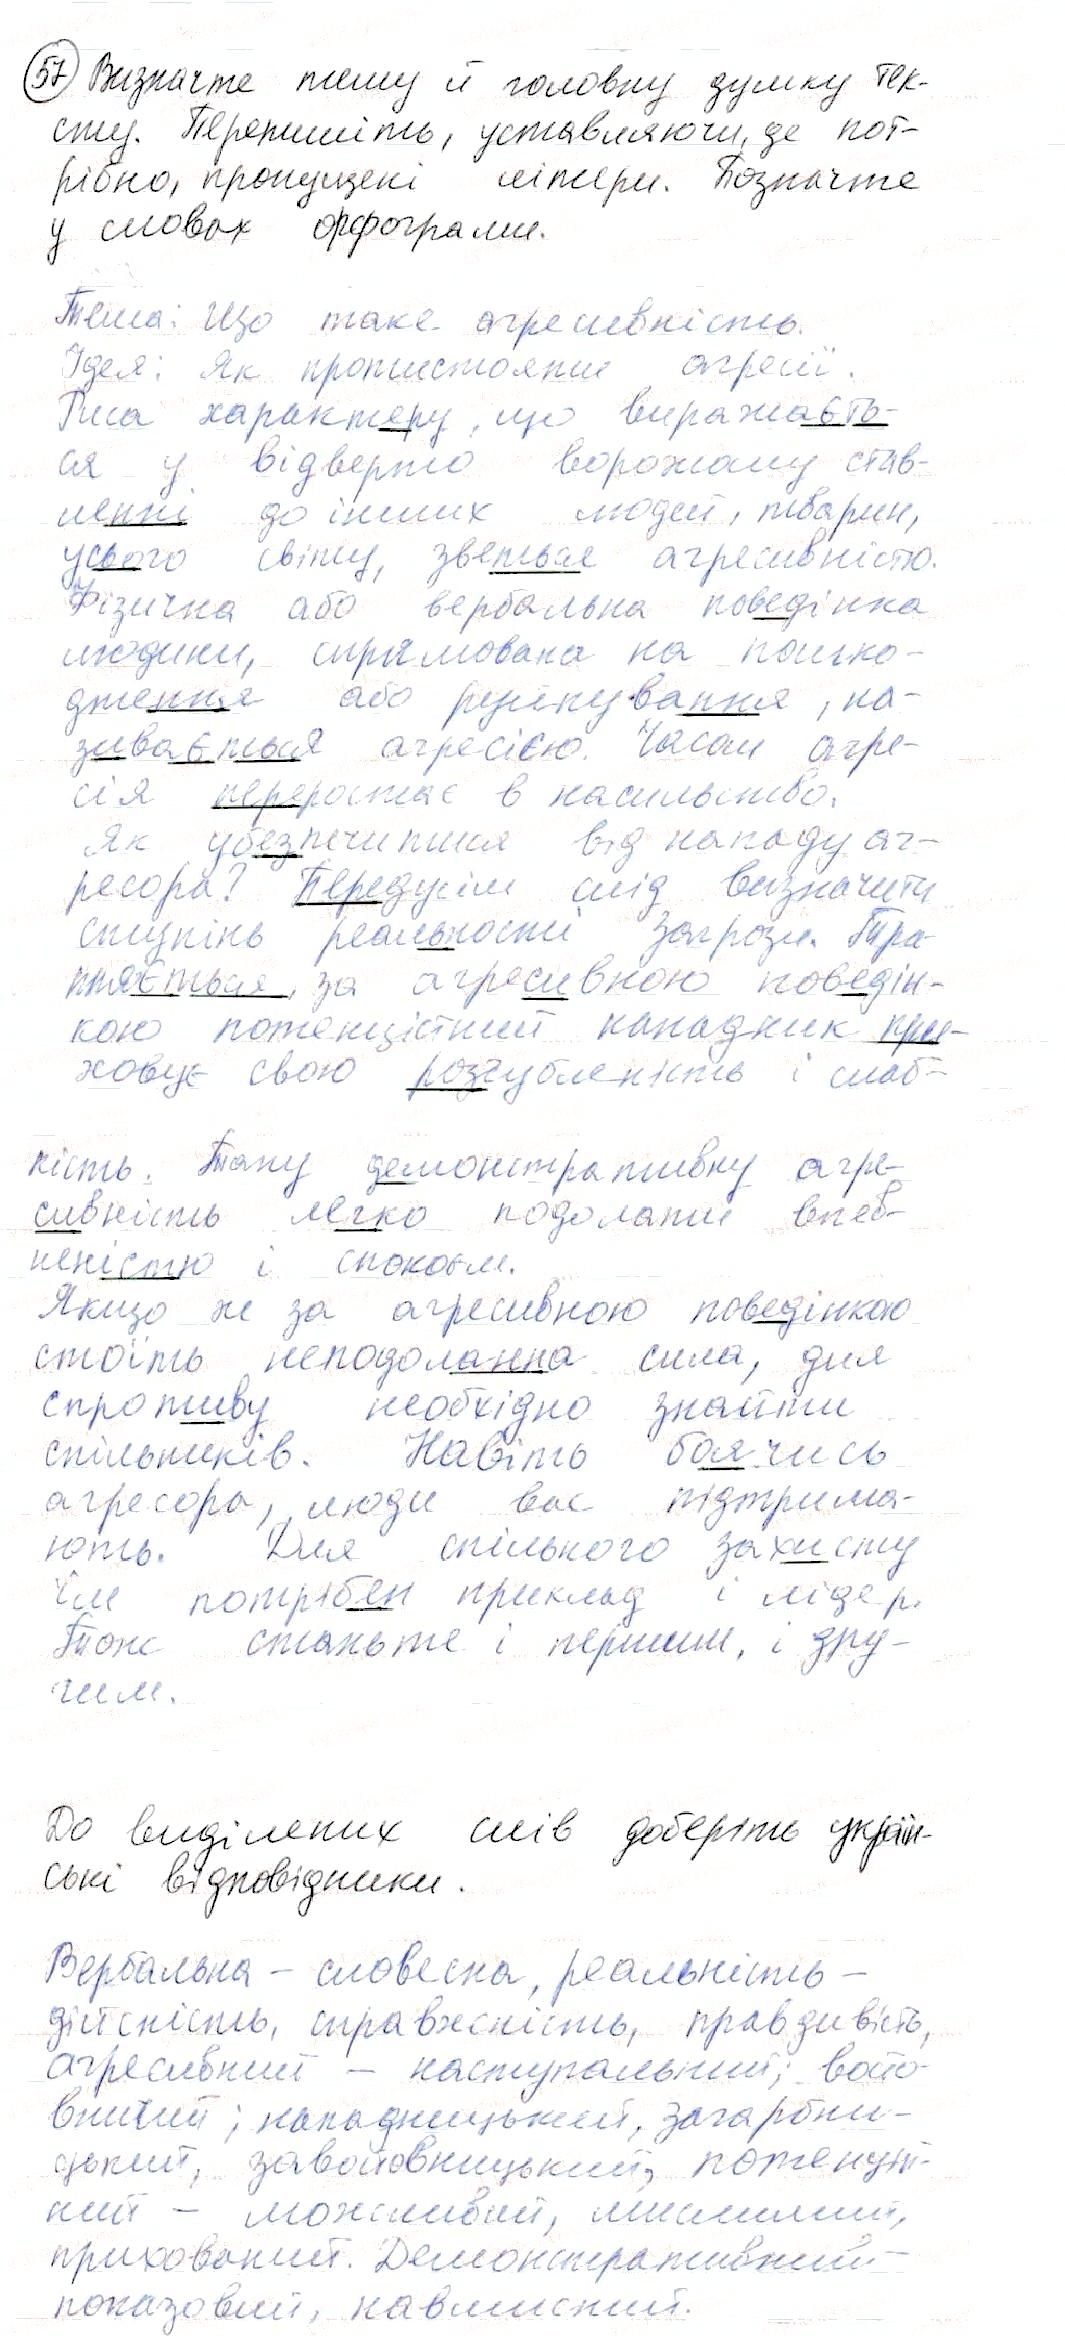 57 Визначте тему й головну думку тек-
сту. Перепишіть, уставляючи, де пот-
рібно, пропущені літери. Позначте
у словах орфограми.
Тема: Що таке агресивність.
Ідея: Як протистояти агресії.
Риса характеру, що виражаєть-
ся у відверто ворожому став-
ленні до інших людей, тварин,
усього світу, зветься агресивністю.
Фізична або вербальна поведінка
людини, спрямована на пошко-
дження або руйнування, на-
зивається агресією. Часом агре-
сія переростає в насильство.
Як убезпечитися від нападу аг-
ресора? Передусім слід визначити
ступінь реальності загрози. Тра-
пляється, за агресивною поведін-
кою потенційний нападник при-
ховує свою розгубленість і слаб-
кість. Таку демонстративну агре-
сивність легко подолати впев-
неністю і спокоєм.
Якщо ж за агресивною поведінкою
стоїть неподоланна сила, для
спротиву необхідно знайти
спільників. Навіть боячись
агресора, люди вас підтрима-
ють. Для спільного захисту
їм потрібен приклад і лідер.
Тож станьте і першим, і дру-
гим.
До виділених слів доберіть україн-
ські відповідники.
Вербальна – словесна, реальність –
дійсність, справжність, правдивість,
агресивний – наступальний; войо-
вничий; нападницький, загарбни-
цький, завойовницький, потенцій-
ний – можливий, мислимий,
прихований. Демонстративний –
показовий, навмисний.